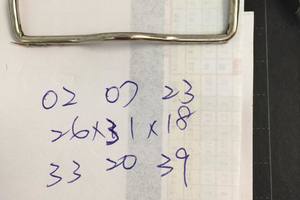 02 07 23
26×31×18
33 20 39